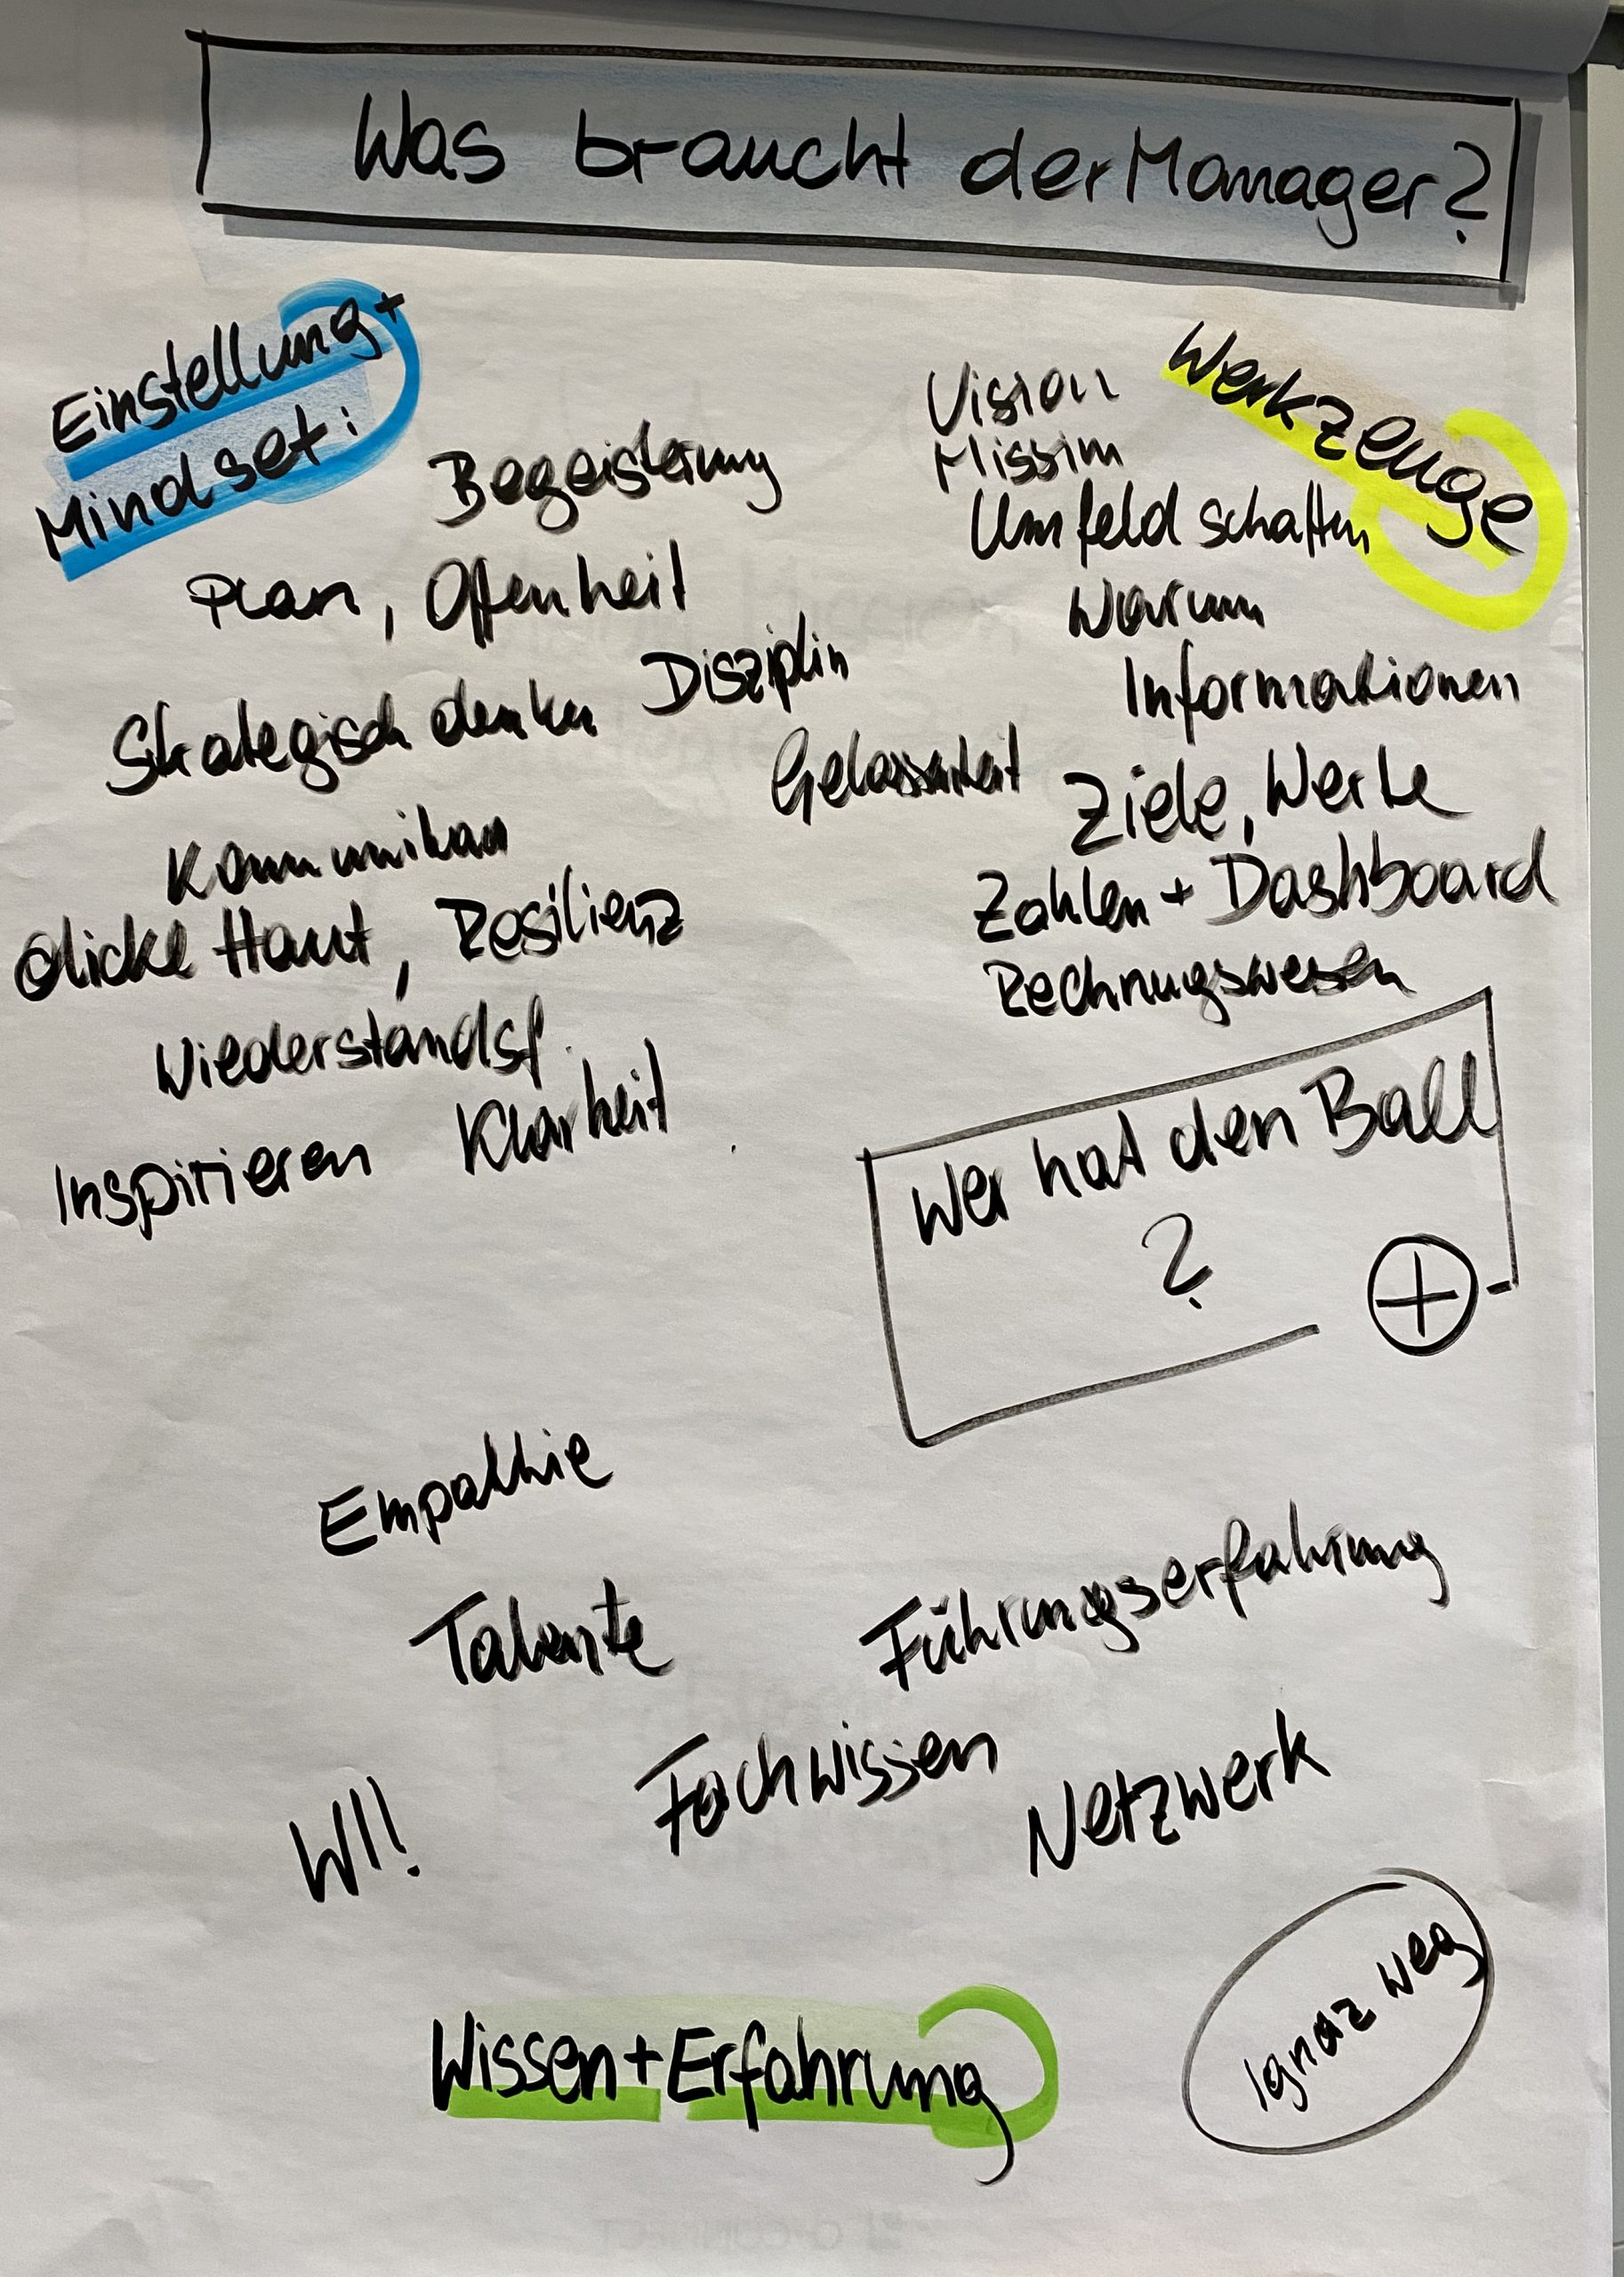 Was braucht der Manager?
Einstellung +
Mindset:
Begeisterung
Plan, Offenheit
Disziplin
Strategisch denken
Gelassenheit
Kommunikation
dicke Haut, Resilienz
Wiederstandsf.
Inspirieren Klarheit
Werkzeuge
Vision
Mission
Umfeld schaffen
Warum
Informationen
Ziele, Werte
Zahlen + Dashboard
Rechnungswesen
Wer hat den Ball
?
Empathie
Talente
Führungserfahrung
Fachwissen
Netzwerk
WI!
Wissen + Erfahrung
Ignaz weg